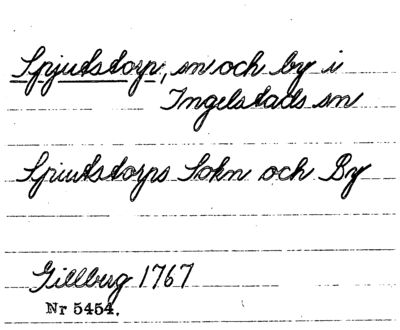 Spjutstorp, sn och by i
Ingelstads sn
Spiutstorps Sokn och By
Gillberg 1767
Nr 5454.